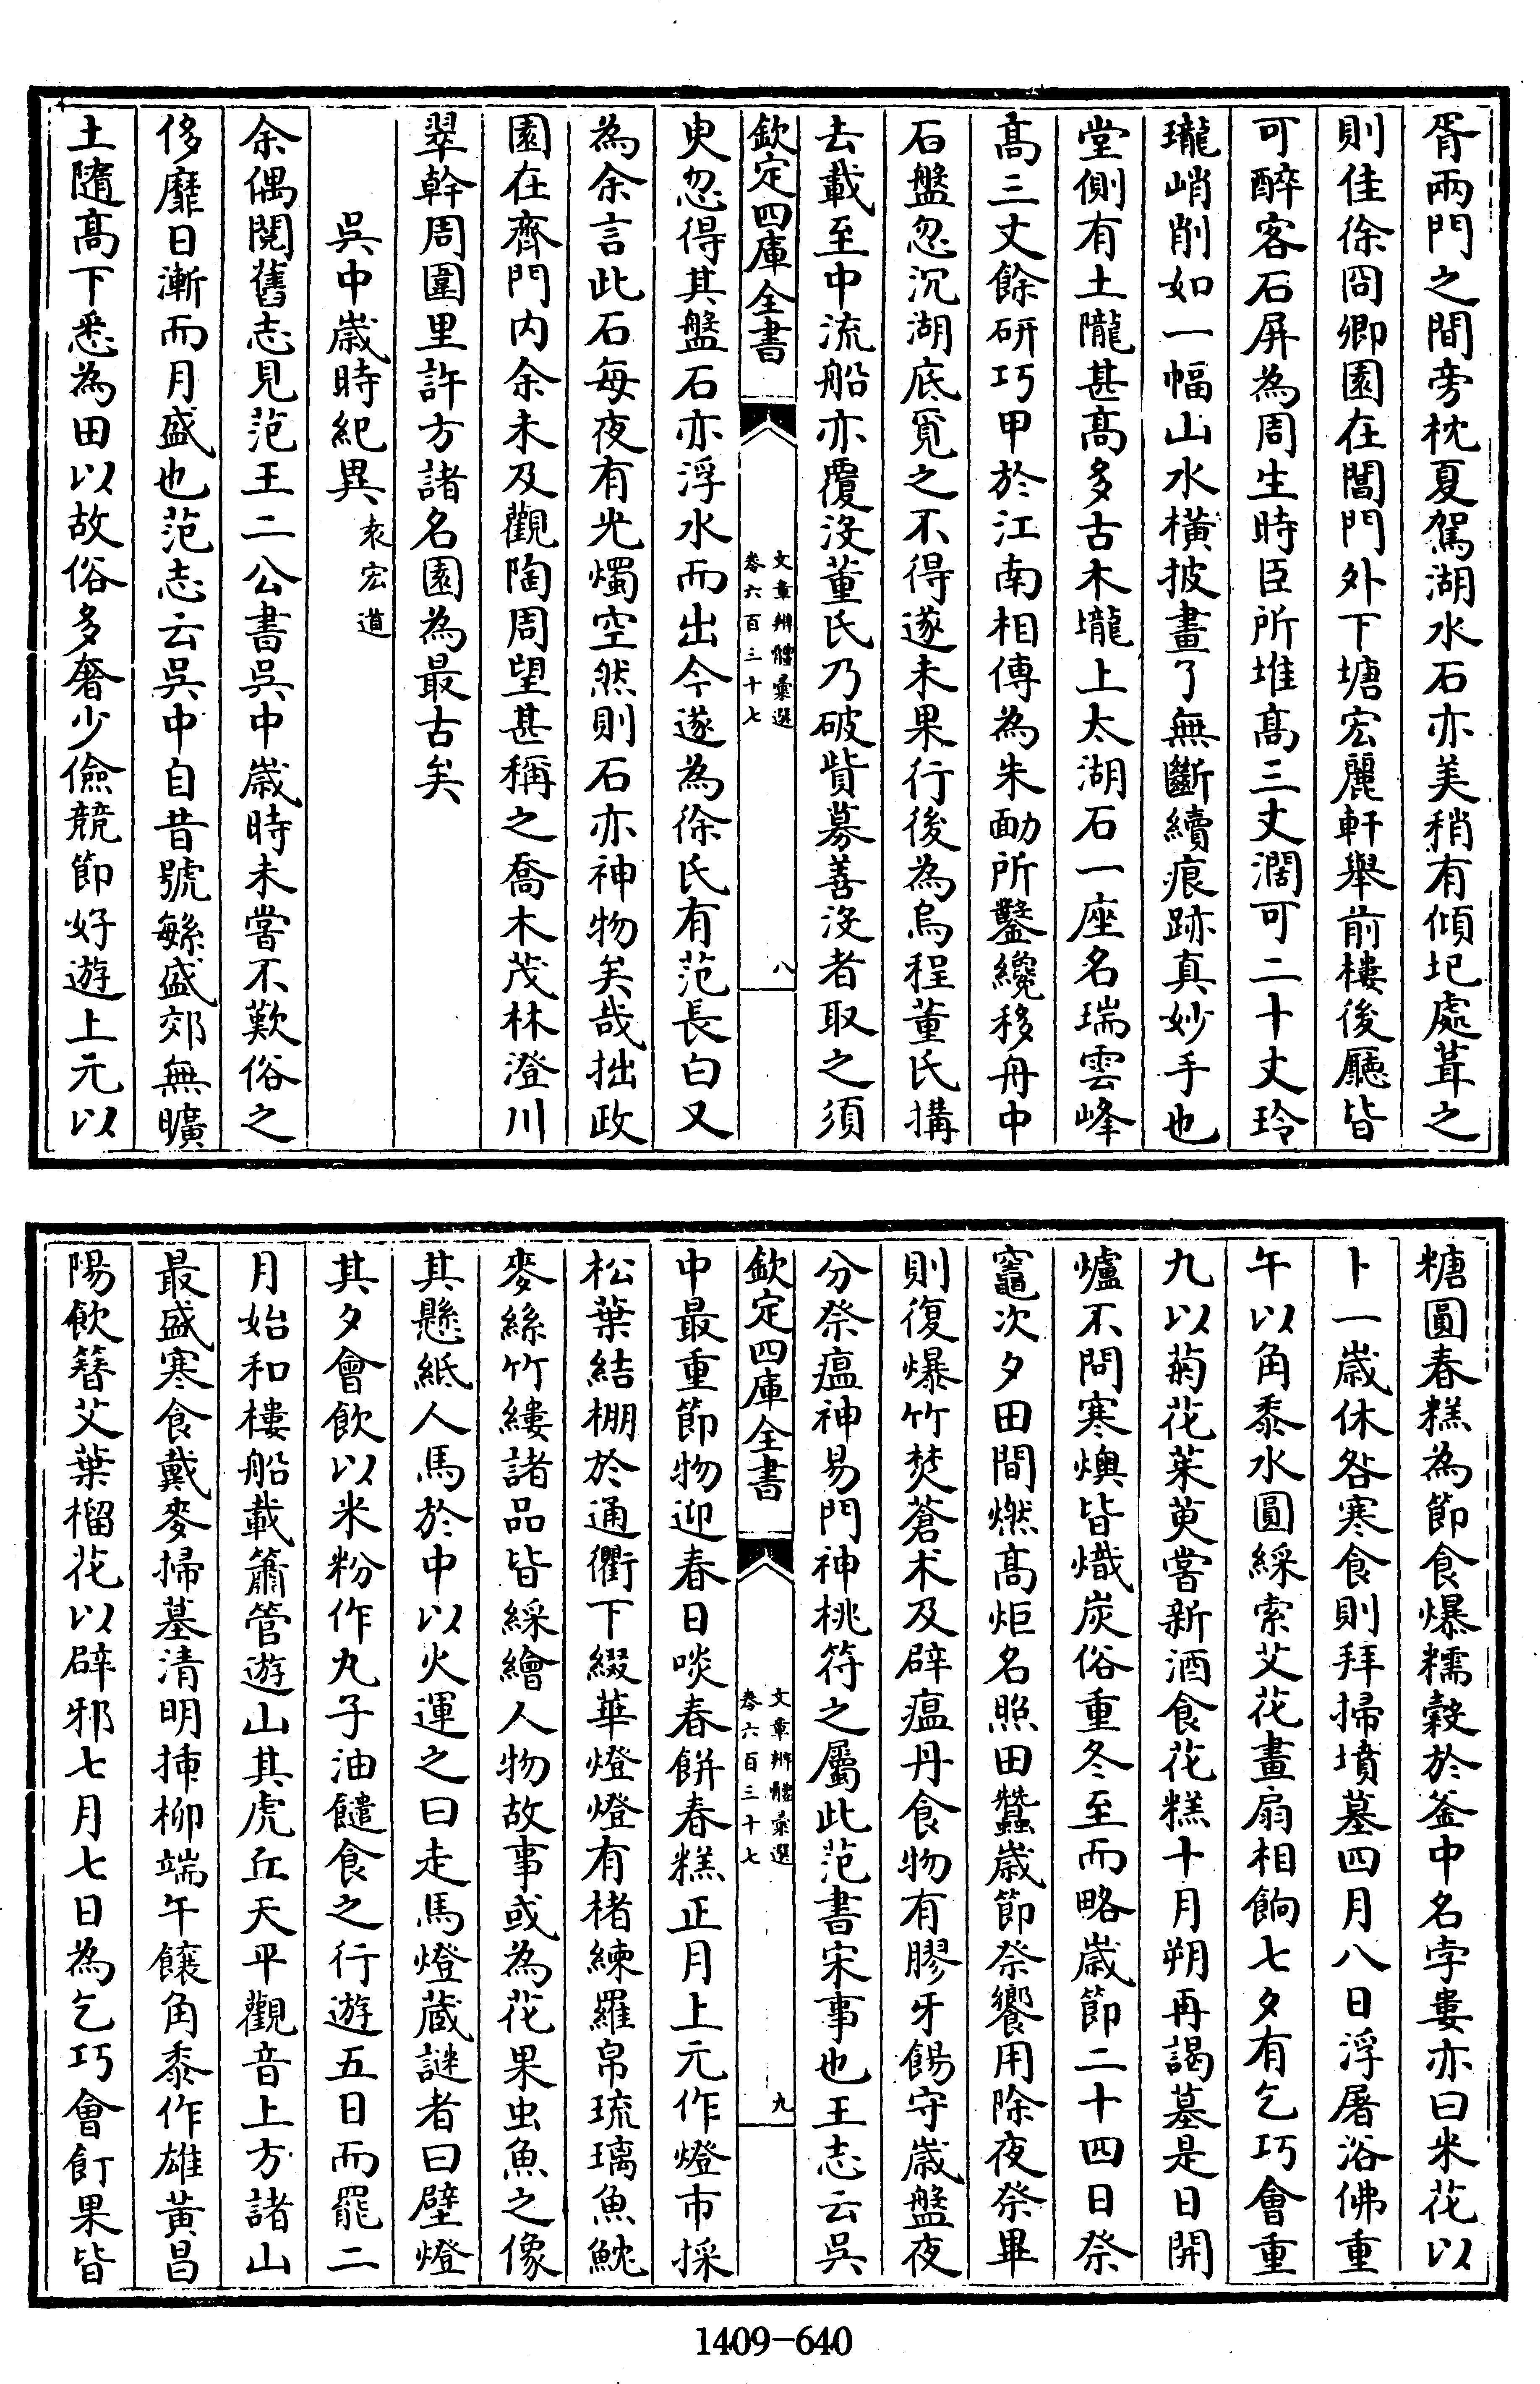 胥兩門之間旁枕夏駕湖水石亦美稍有傾圮處葺之
則佳徐冏卿園在閶門外下塘宏麗軒舉前樓後廳皆
可醉客石屏為周生時臣所堆髙三丈濶可二十丈玲
瓏峭削如一幅山水橫披畫了無斷續痕跡真妙手也
堂側有土隴甚髙多古木壠上太湖石一座名瑞雲峰
髙三丈餘研巧甲於江南相傳為朱勔所鑿纔移舟中
石盤忽沉湖底覓之不得遂未果行後為烏程董氏搆
去載至中流船亦覆沒董氏乃破貲募善沒者取之須
欽定四庫全書
文章辨體彙選
卷六百三十七
八
臾忽得其盤石亦浮水而出今遂為徐氏有范長白又
為余言此石每夜有光燭空然則石亦神物矣哉拙政
園在齊門内余未及觀陶周望甚稱之喬木茂林澄川
翠幹周圍里許方諸名園為最古矣
吳中歲時紀異袁宏道
余偶閱舊志見范王二公書吳中歲時未嘗不歎俗之
侈靡日漸而月盛也范志云吳中自昔號繁盛郊無曠
土隨髙下悉為田以故俗多奢少儉競節好遊上元以
糖圓春糕為節食爆糯穀於釜中名孛婁亦曰米花以
卜一歲休咎寒食則拜掃墳墓四月八日浮屠浴佛重
午以角黍水圓綵索艾花畫扇相餉七夕有乞巧會重
九以菊花茱萸嘗新酒食花糕十月朔再謁墓是日開
爐不問寒燠皆熾炭俗重冬至而略歲節二十四日祭
竈次夕田間燃髙炬名照田蠶歲節祭饗用除夜祭畢
則復爆竹焚蒼术及辟瘟丹食物有膠牙餳守歲盤夜
分祭瘟神易門神桃符之屬此范書宋事也王志云吳
欽定四庫全書
文章辨體彙選
卷六百三十七
九
中最重節物迎春日啖春餅春糕正月上元作燈市採
松葉結棚於通衢下綴華燈燈有楮練羅帛琉璃魚魫
麥絲竹縷諸品皆綵繪人物故事或為花果虫魚之像
其懸紙人馬於中以火運之曰走馬燈藏謎者曰壁燈
其夕會飲以米粉作丸子油䭔食之行遊五日而罷二
月始和樓船載簫管遊山其虎丘天平觀音上方諸山
最盛寒食戴麥掃墓清明揷柳端午饟角黍作雄黃昌
陽飲簪艾葉榴花以辟邪七月七日為乞巧會飣果皆
1409-640